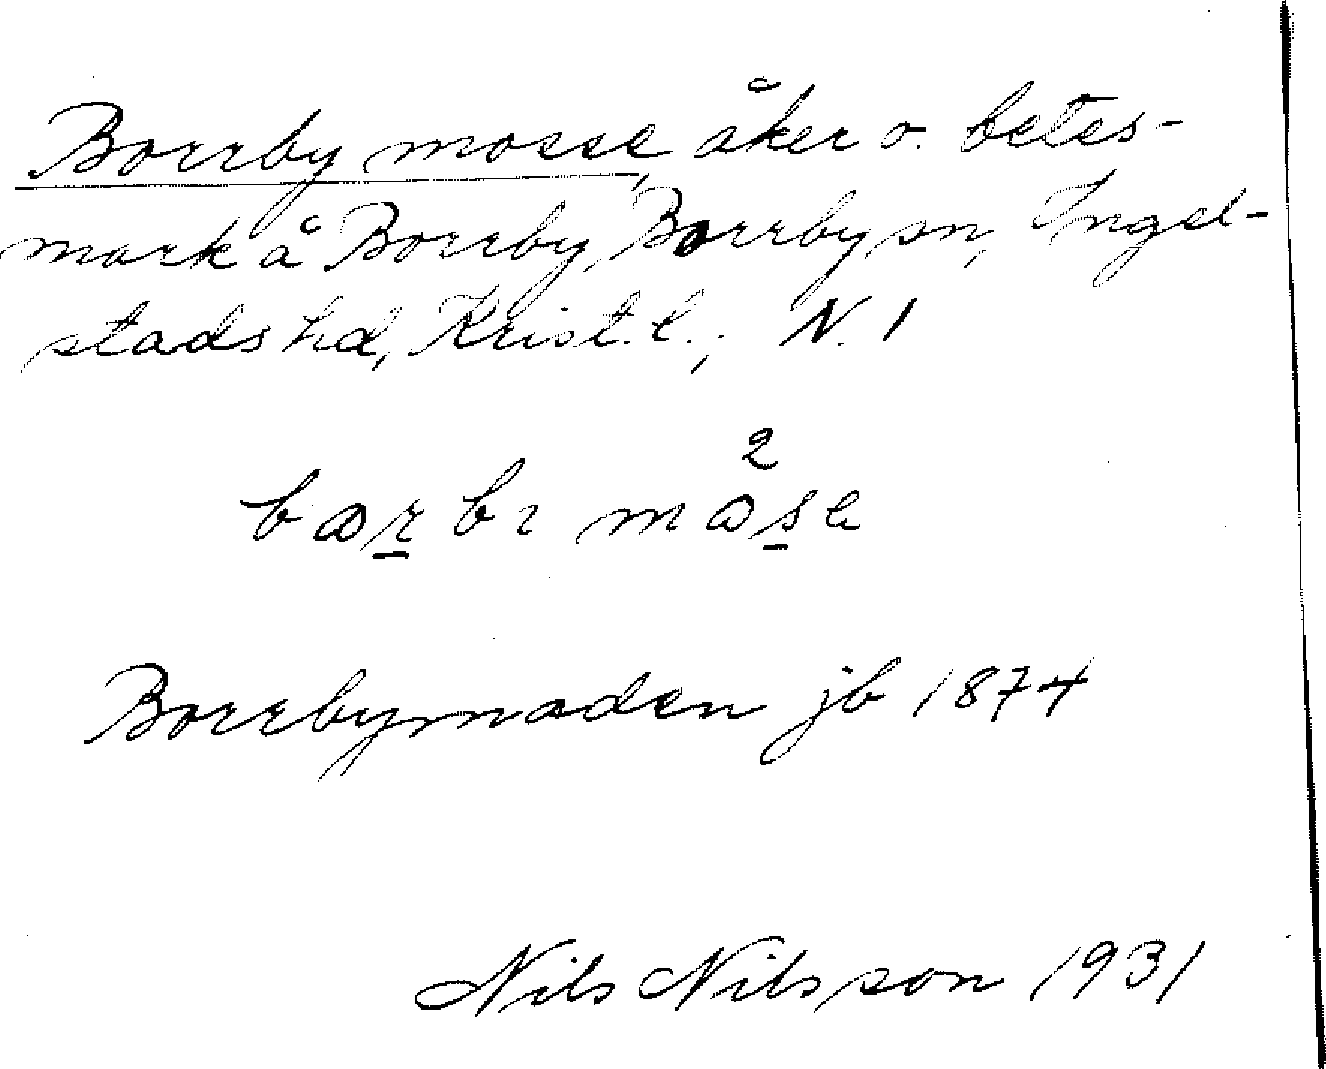 Borrby mosse, åker o. betes-
mark å Borrby, Borrby sn, Ingel-
stads hd, Krist. l.; N. 1
2
bɷrbı mɷsɐ
Borrbymaden jb 1874
Nils Nilsson 1931